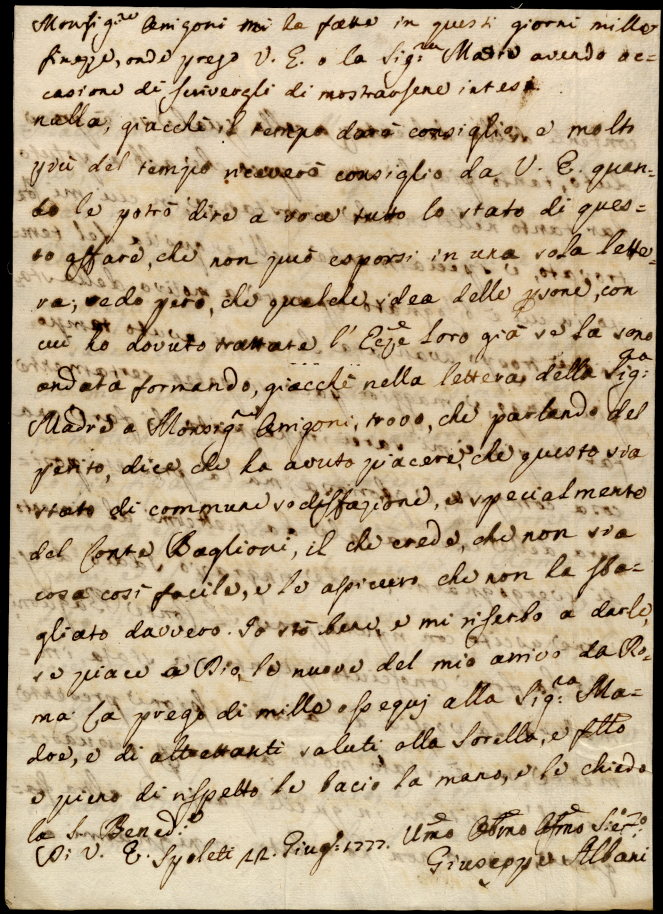 Monsig.re Arrigoni mi ha fatte in questi giorni mille
finezze, onde prego V. E. o la Sig.ra Madre avendo oc=
casione di scrivergli di mostrarsene intesa.
nulla, giacchè il tempo darà consiglio, e molto
più del tempo riceverò consiglio da V. E. quan=
do le potrò dire a voce tutto lo stato di ques=
to affare, che non può esporsi in una sola lette=
ra; vedo però, che qualche idea delle psone, con
cui ho dovuto trattare l' Ecc.ze Loro già se la sono
andata formando, giacchè nella lettera della Sig.ra
Madre a Monsig.re Arrigoni, trovo, che parlando del
perito, dice, che ha avuto piacere, che questo sia
stato di commune sodisfazione, e specialmente
del Conte Baglioni, il che crede, che non sia
cosa così facile, e le assicuro che non ha sba=
gliato davvero. Io stò bene, e mi riserbo a darle,
se piace a Dio, le nuove del mio arrivo da Ro=
ma. La prego di mille ossequj alla Sig.ra Ma=
dre, e di altrettanti saluti alla Sorella, e
e pieno di rispetto le bacio la mano, e le chiedo
la S. Bened.e
Di V. E. Spoleti 22. Giug.o 1777. Umo
Giuseppe Albani